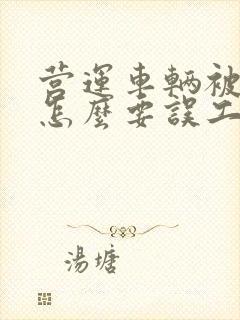 营運車輛被
怎麽要誤工
湯塘